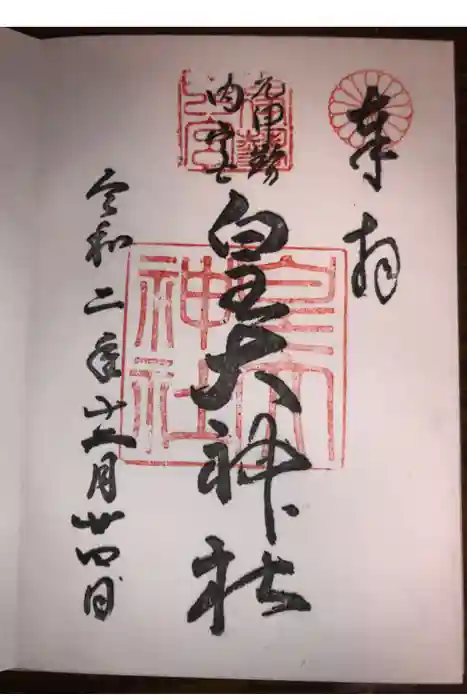 奉拝
元伊勢
内宮
皇大神社
皇大
神社
令和二年十二月廿四日